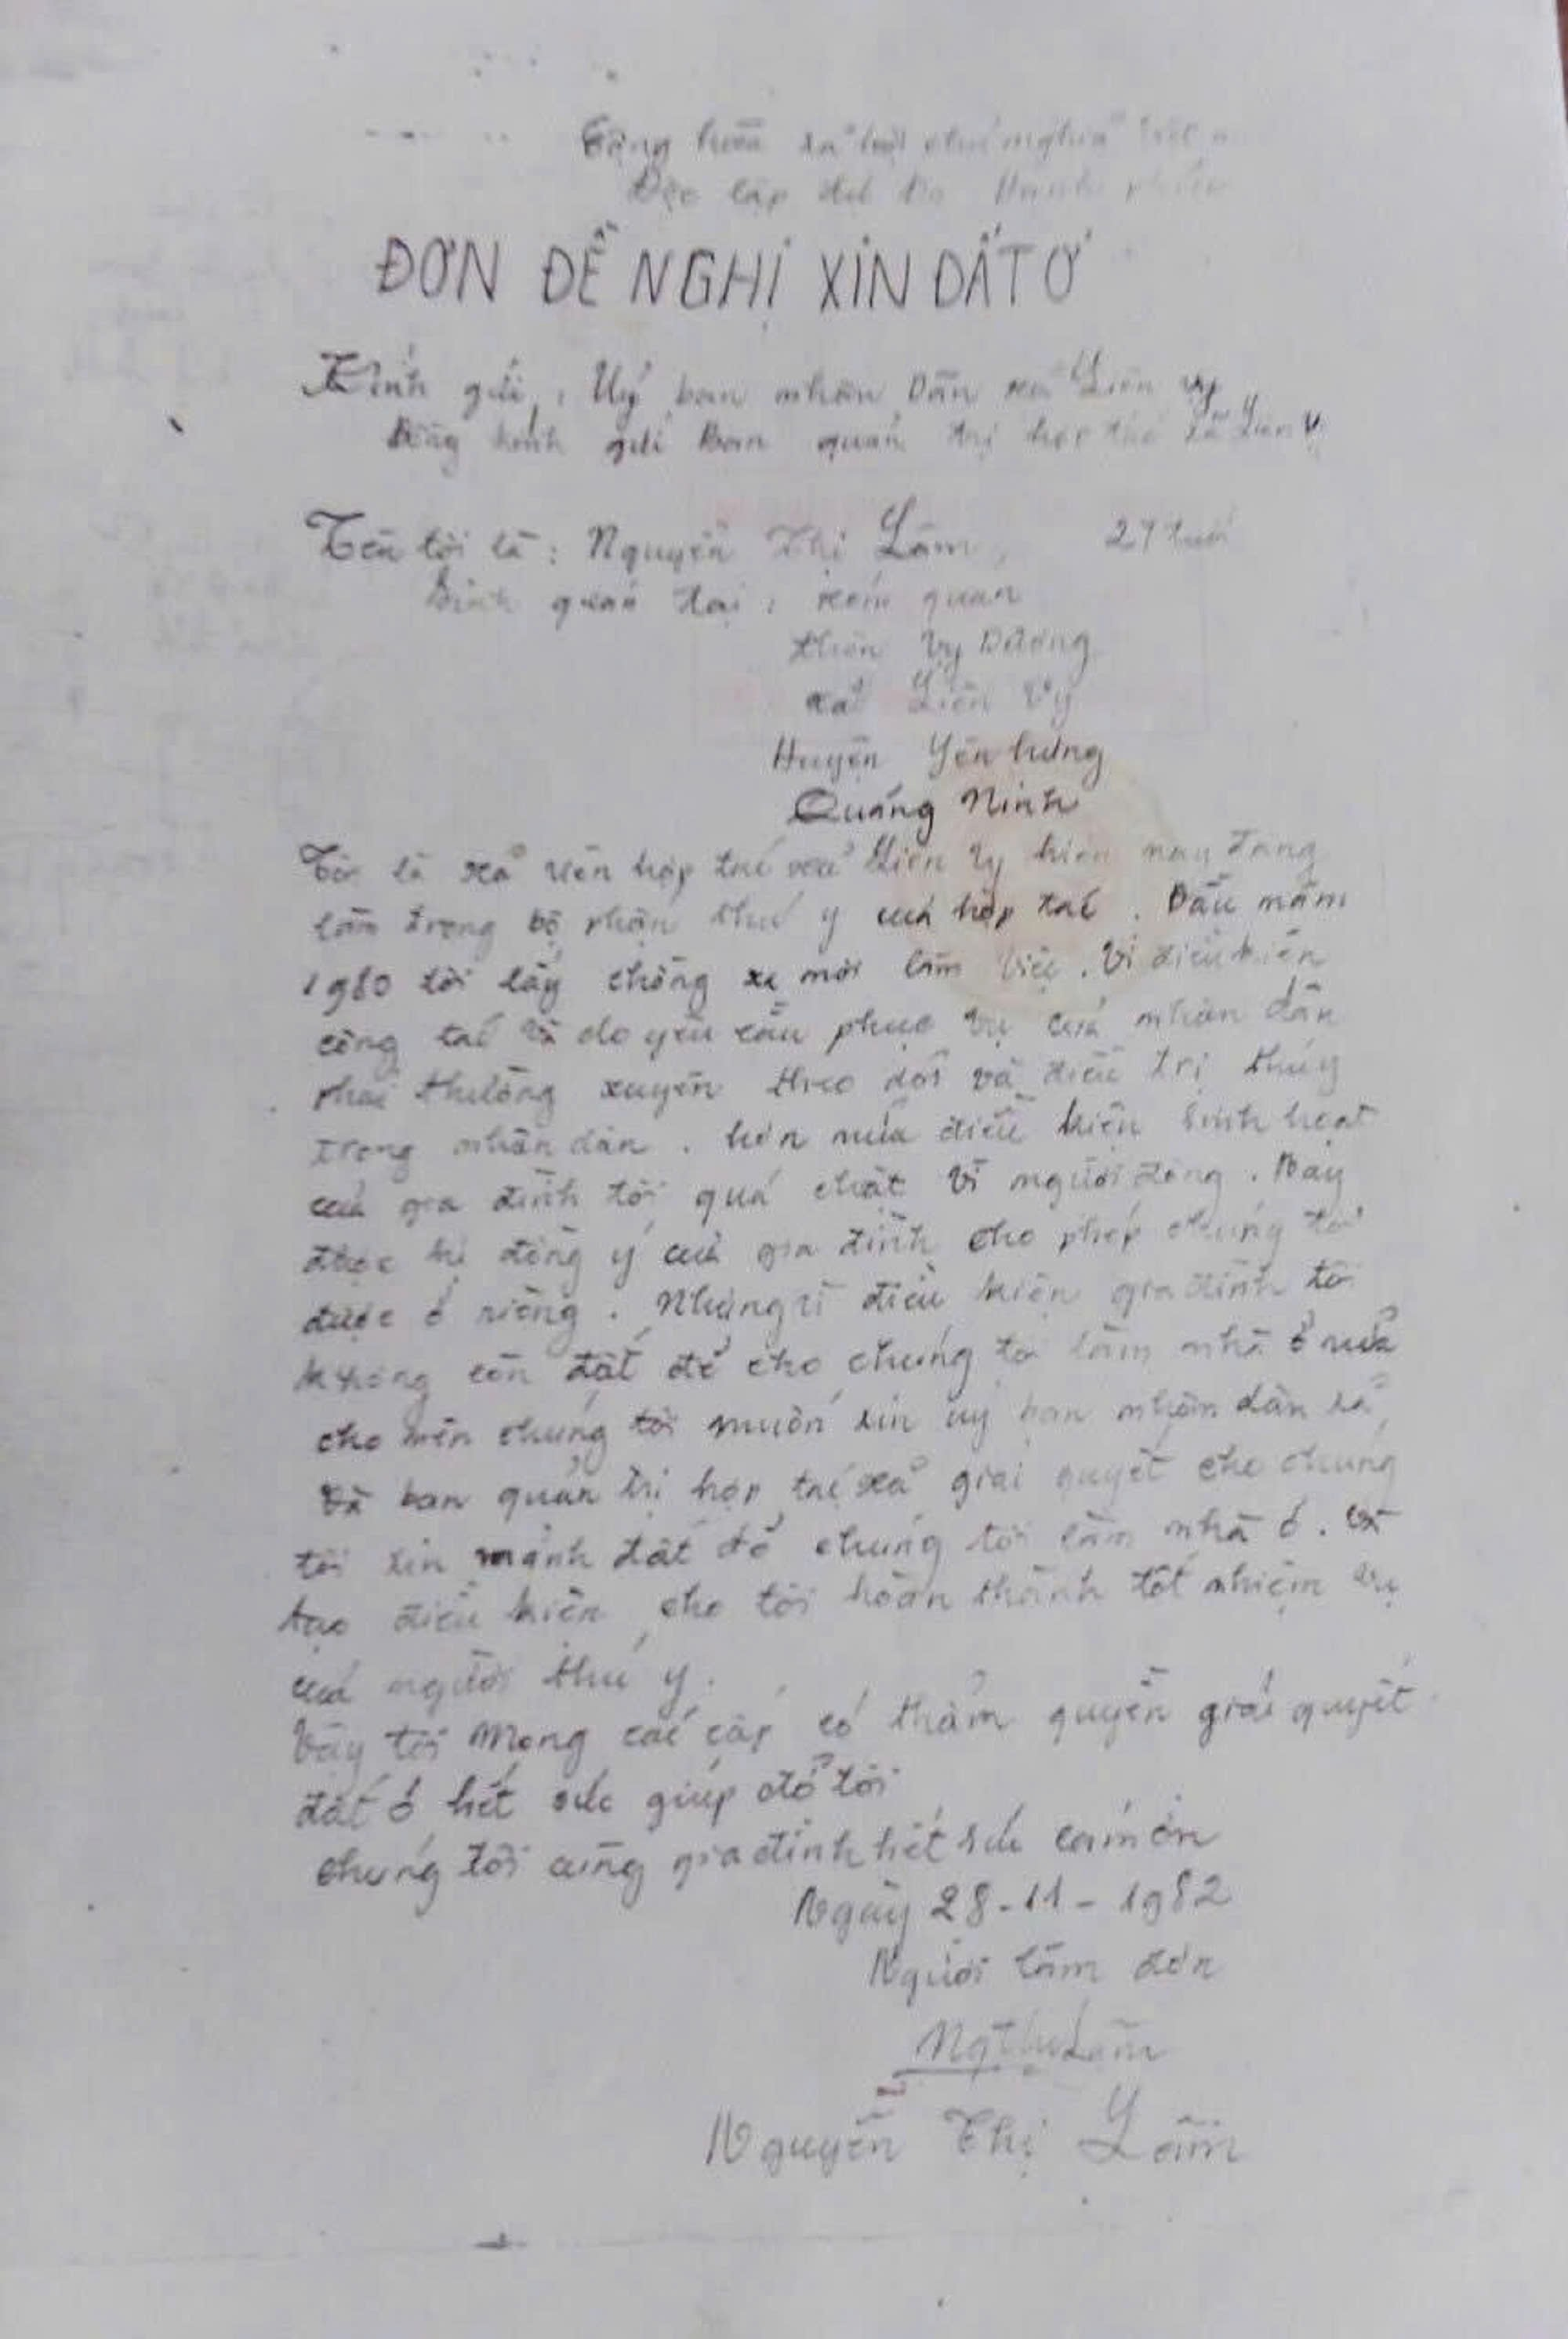 Cộng hòa xã hội chủ nghĩa Việt
Độc lập tự do Hạnh phúc
ĐƠN ĐỀ NGHỊ XIN ĐẤT Ở
Kính gửi : Uỷ ban nhân Dân xã Liên Vỵ
Đồng kính gửi Ban quản trị hợp tác xã Liên Vị
Tên tôi là : Nguyễn Thị Lâm 27 tuổi
Sinh quán tại : xóm quán
thôn Vỵ Dương
xã Liên Vỵ
Huyện Yên hưng
Quảng Ninh
Tôi là xã viên hợp tác xã Liên Vỵ hiện nay đang
làm trong bộ phận thú y của hợp tác . Đầu năm
1980 tôi lấy chồng xa nơi làm việc . Vì điều kiện
công tác và do yêu cầu phục vụ của nhân dân
phải thường xuyên theo dõi và điều trị thúy
trong nhân dân . hơn nữa điều kiện sinh hoạt
của gia đình tôi quá chật vì người đông . Nay
được sự đồng ý của gia đình cho phép chúng tôi
được ở riêng . Nhưng vì điều kiện gia đình tôi
không còn đất để cho chúng tôi làm nhà ở nữa
cho nên chúng tôi muốn xin uỷ ban nhân dân xã
và ban quản trị hợp tác xã giải quyết cho chúng
tôi xin mảnh đất để chúng tôi làm nhà ở . và
tạo điều kiện cho tôi hoàn thành tốt nhiệm vụ
của người thú y .
Vậy tôi Mong các cấp có thẩm quyền giải quyết
đất ở hết sức giúp đỡ tôi
chúng tôi cùng gia đình hết sức cám ơn
Ngày 28-11-1982
Người làm đơn
Nguyễn Thị Lâm